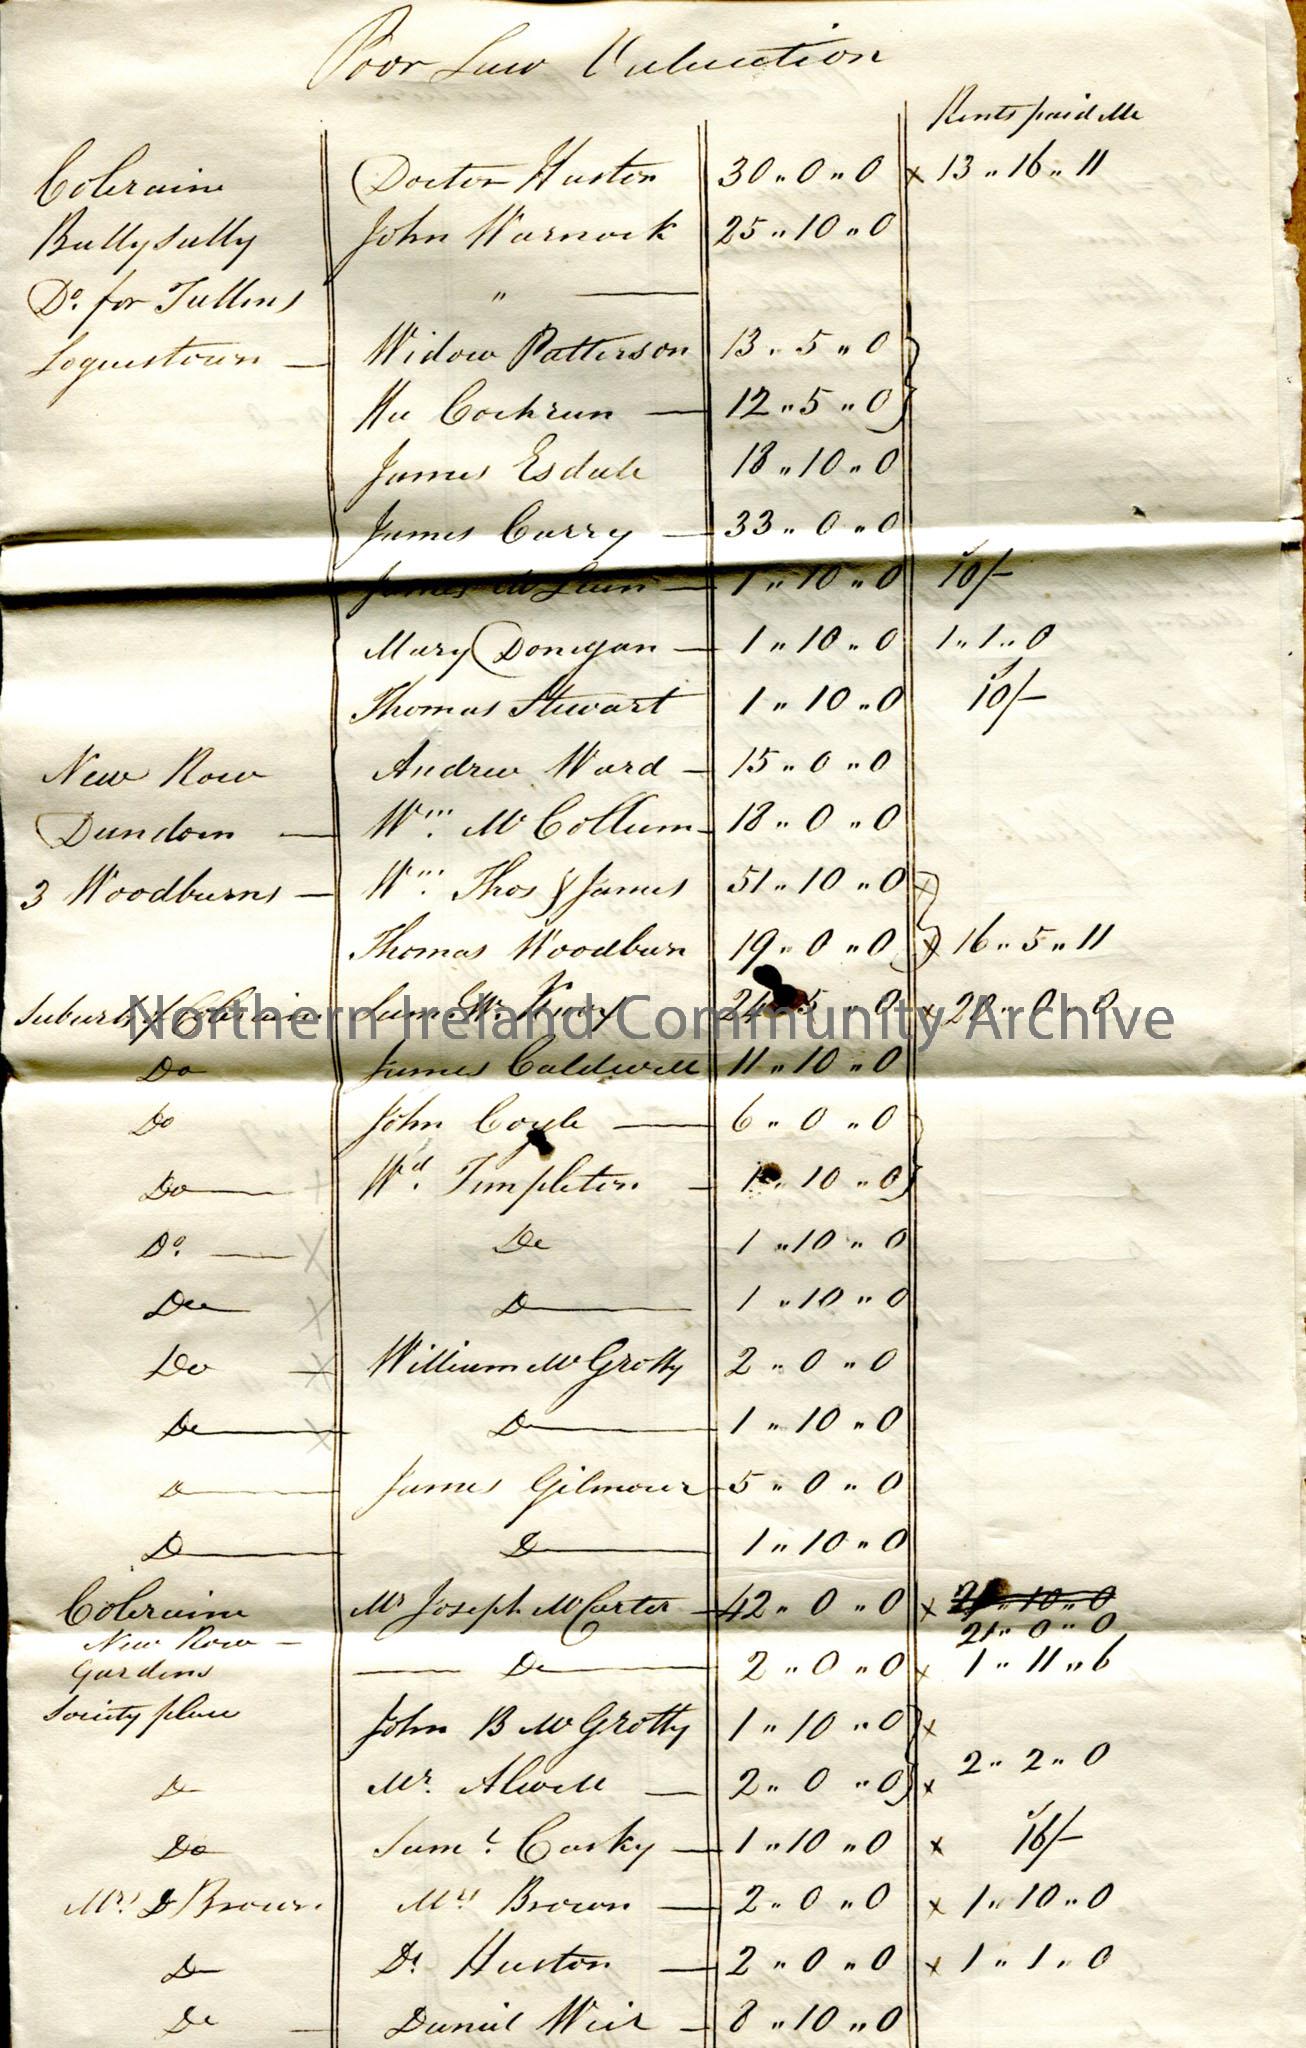 Poor Law Valuation
Rents paid Me
Coleraine Doctor Huston 30 " 0 " 0 x 13 " 16 " 11
Ballysally John Warnock 25 " 10 " 0
Do. for Tullens "
Loguestown Widow Patterson 13 " 5 " 0
Hu Cochran 12 " 5 " 0
James Esdale 18 " 10 " 0
James Curry 33 " 0 " 0
James McLean 1 " 10 " 0 10/-
Mary Donegan 1 " 10 " 0 1 " 1 " 0
Thomas Stewart 1 " 10 " 0 10/-
New Row Andrew Ward 15 " 0 " 0
Dundoin Wm. McCollum 18 " 0 " 0
3 Woodburns Wm. Thos & James 51 " 10 " 0 x
Thomas Woodburn 19 " 0 " 0 x 16 " 5 " 11
Suburbs of Coleraine 24 " 5 " 0 x 20 " 0 " 0
Northern Ireland Community Archive
Do James Caldwell 11 " 10 " 0
Do John Coyle 6 " 0 " 0
Do Wd. Templeton 1 " 10 " 0
Do. x Do 1 " 10 " 0
Do x D 1 " 10 " 0
Do x William McGrotty 2 " 0 " 0
Do x D 1 " 10 " 0
D James Gilmour 5 " 0 " 0
D D 1 " 10 " 0
Coleraine Mr Joseph McCarter 42 " 0 " 0 x 21 " 10 " 0
New Row 21 " 0 " 0
Gardens Do 2 " 0 " 0 x 1 " 11 " 6
Society place John B McGrotty 1 " 10 " 0 x
D Mr. Alwell 2 " 0 " 0 x 2 " 2 " 0
Do Saml. Casky 1 " 10 " 0 x 16/-
Mrs. D Brown Mrs Brown 2 " 0 " 0 x 1 " 10 " 0
D Dr Huston 2 " 0 " 0 x 1 " 1 " 0
Do Daniel Weir 8 " 10 " 0